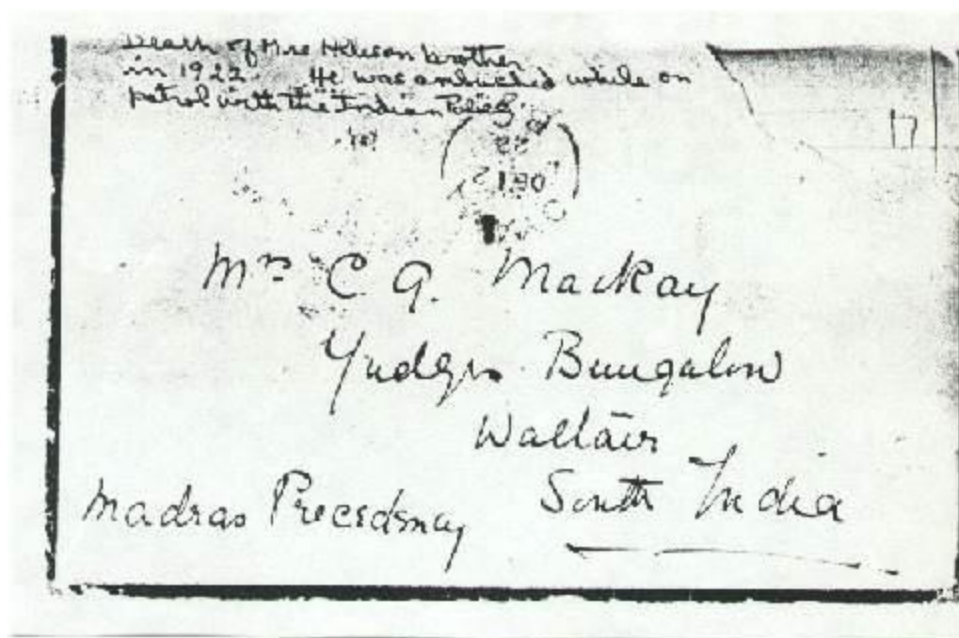 Death of Mrs brother
in 1922. He was ambushed while on
patrol with the Indian Police.
17
22
190
Mrs C G. Mackay
Judges Bungalow
Waltair
South India
Madras Precedency